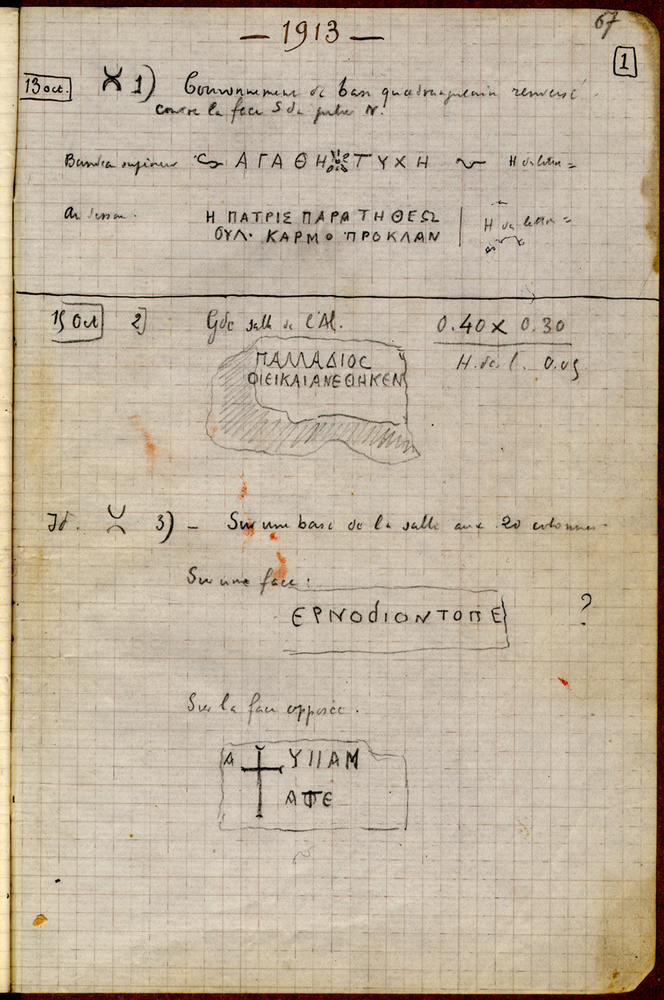 67
— 1913 —
1
13 oct. 1) Couronnement de base quadrangulaire renversé
contre la face S du N.
Bandeau supérieur ΑΓΑΘΗ ΤΥΧΗ H de lettre =
Au dessous. Η ΠΑΤΡΙΣ ΠΑΡΑ ΤΗ ΘΕΩ H de lettre =
ΟΥΛ· ΚΑΡΜΟ ΠΡΟΚΛΑΝ
15 Oct 2] Gde salle de l'Al. 0.40 x 0.30
ΠΑΛΛΑΔΙΟC H. de l. 0.05
ΟΙΕΙΚΑΙΑΝΕΘΗΚΕΝ
Id. 3) — Sur une base de la salle aux 20 colonnes
Sur une face :
ΕΡΝΟdΙΟΝΤΟΠΕ ?
Sur la face opposée.
Α ΥΠΑΜ
ΑΠΕ